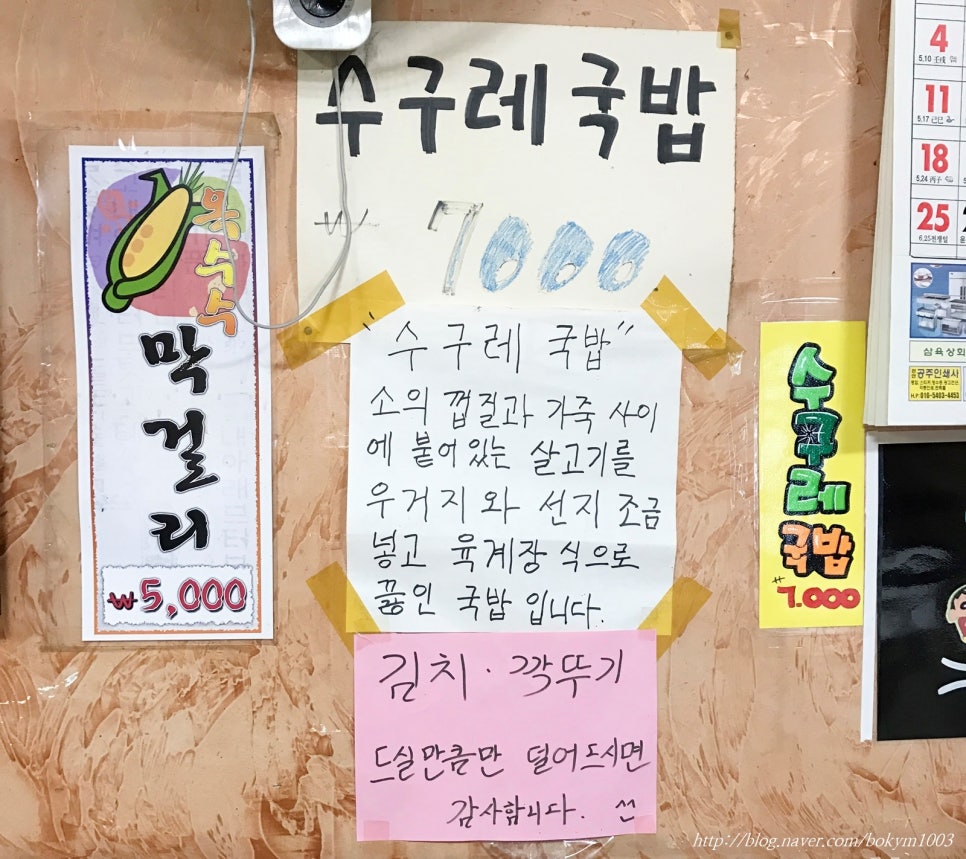 수구레국밥
₩ 7000
옥수수
막걸리
₩5,000
"수구레 국밥"
소의 껍질과 가죽 사이
에 붙어있는 살고기를
우거지와 선지 조금
넣고 육계장 식으로
끓인 국밥 입니다.
김치 · 깍뚜기
드실만큼만 덜어드시면
감사합니다. ^^
수구레
국밥
₩7.000
4
5.10
11
5.17
18
5.24
25
6.25전쟁일
삼육상회
공주인쇄사
http://blog.naver.com/bokym1003